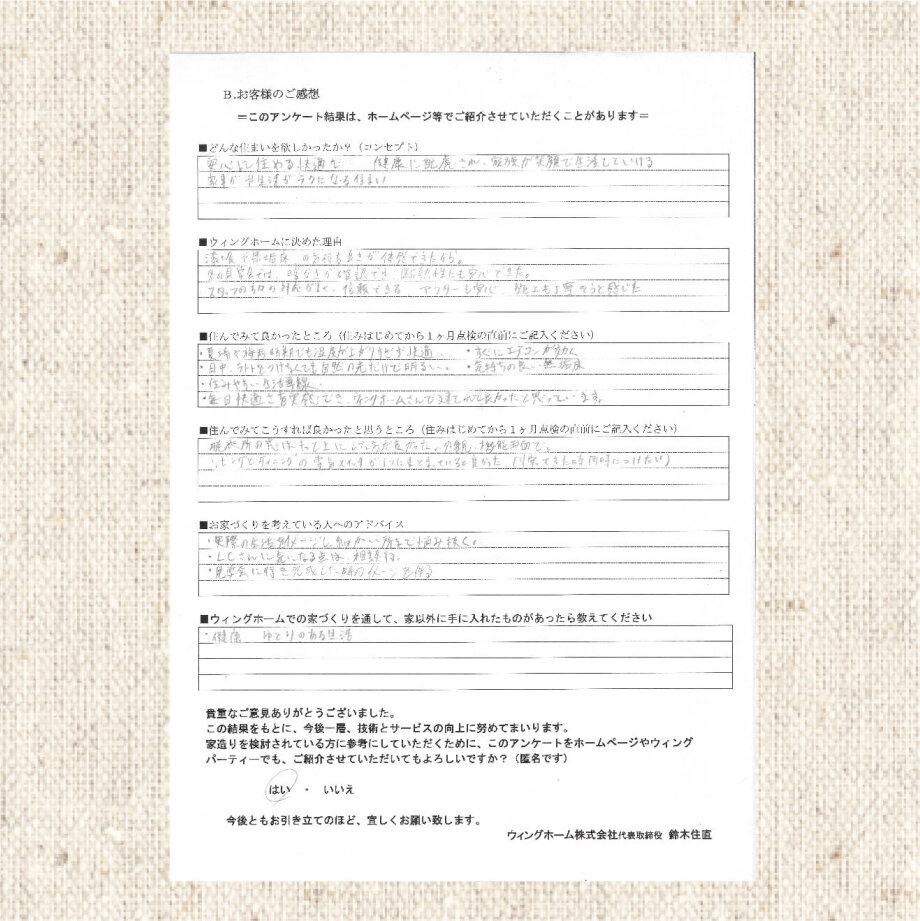 B.お客様のご感想
＝このアンケート結果は、ホームページ等でご紹介させていただくことがあります＝
■どんな住まいを欲しかったか？（コンセプト）
安心して住める快適な　健康に配慮され、家族が笑顔で生活していける
家事が 生活がラクになる住まい
■ウィングホームに決めた理由
漆喰や無垢床の気持ち良さが体感できたから。
冬の見学会では、暖かさが確認でき、断熱性にも安心できた。
スタッフの方の対応がよく、信頼できる　アフターも安心、施工も丁寧そうと感じた
■住んでみて良かったところ（住みはじめてから１ヶ月点検の直前にご記入ください）
・夏場や梅雨時期でも温度が上がりすぎず快適、　・すぐにエアコンが効く
・日中、ライトをつけなくても自然の光だけで明るい。　・気持ちの良い無垢床
・住みやすい生活導線、
・毎日快適さを実感でき、ウィングホームさんで建てれて良かったと思っています。
■住んでみてこうすれば良かったと思うところ（住みはじめてから１ヶ月点検の直前にご記入ください）
脱衣所の窓はもっと上にした方が良かった。外観、機能面で。
リビングとダイニングの電気スイッチが1つにまとまっていても良かった（ 時同時につけたい）
■お家づくりを考えている人へのアドバイス
・実際の生活をイメージし、細かい所まで悩み抜く。
・LCさんに気になる点は、相談する
・見学会に行き完成した時のイメージを作る
■ウィングホームでの家づくりを通して、家以外に手に入れたものがあったら教えてください
・健康　ゆとりのある生活
貴重なご意見ありがとうございました。
この結果をもとに、今後一層、技術とサービスの向上に努めてまいります。
家造りを検討されている方に参考にしていただくために、このアンケートをホームページやウィング
パーティーでも、ご紹介させていただいてもよろしいですか？（匿名です）
はい　・　いいえ
今後ともお引き立てのほど、宜しくお願い致します。
ウィングホーム株式会社代表取締役　鈴木住直